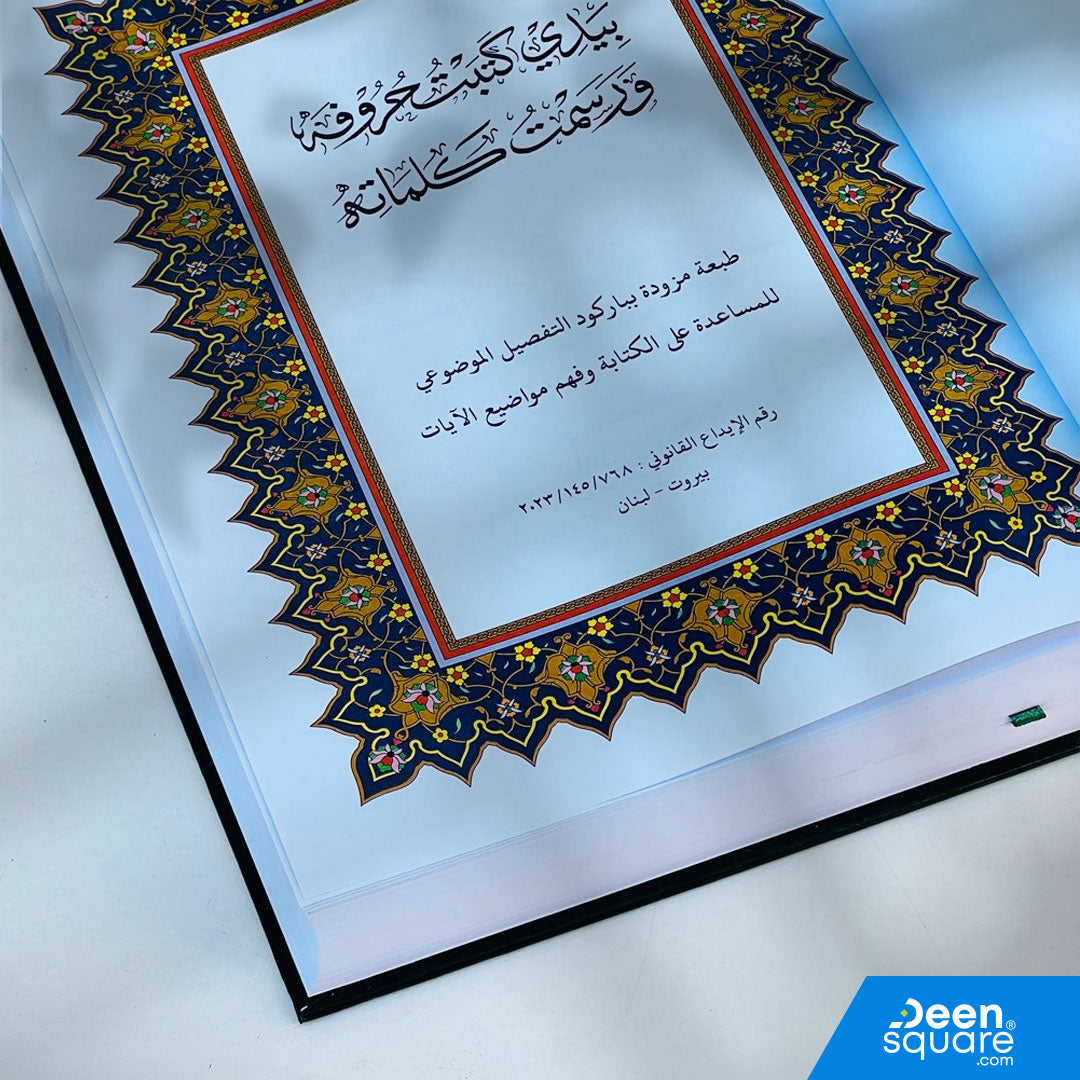 بِيَدِي كَتَبْتُ حُرُوْفَهُ
وَرَسَمْتُ كَلَمَاتِهُ
طبعة مزودة بباركود التفصيل الموضوعي
للمساعدة على الكتابة وفهم مواضيع الآيات
رقم الإيداع القانوني : ٢٠٢٣/١٤٥/٧٦٨
بيروت - لبنان
Deen®
square
.com